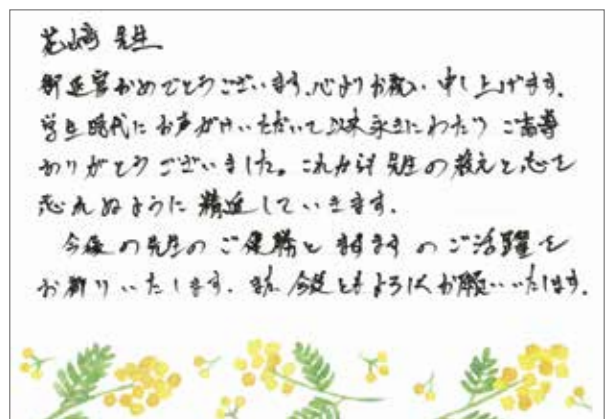 先生
御退官おめでとうございます。心よりお祝い申し上げます。
学生時代にお声がけいただいて以来永きにわたりご指導
ありがとうございました。これからも先生の教えと志を
忘れぬように精進していきます。
今後の先生のご健勝とますますのご活躍を
お祈りいたします。また今後ともよろしくお願いいたします。